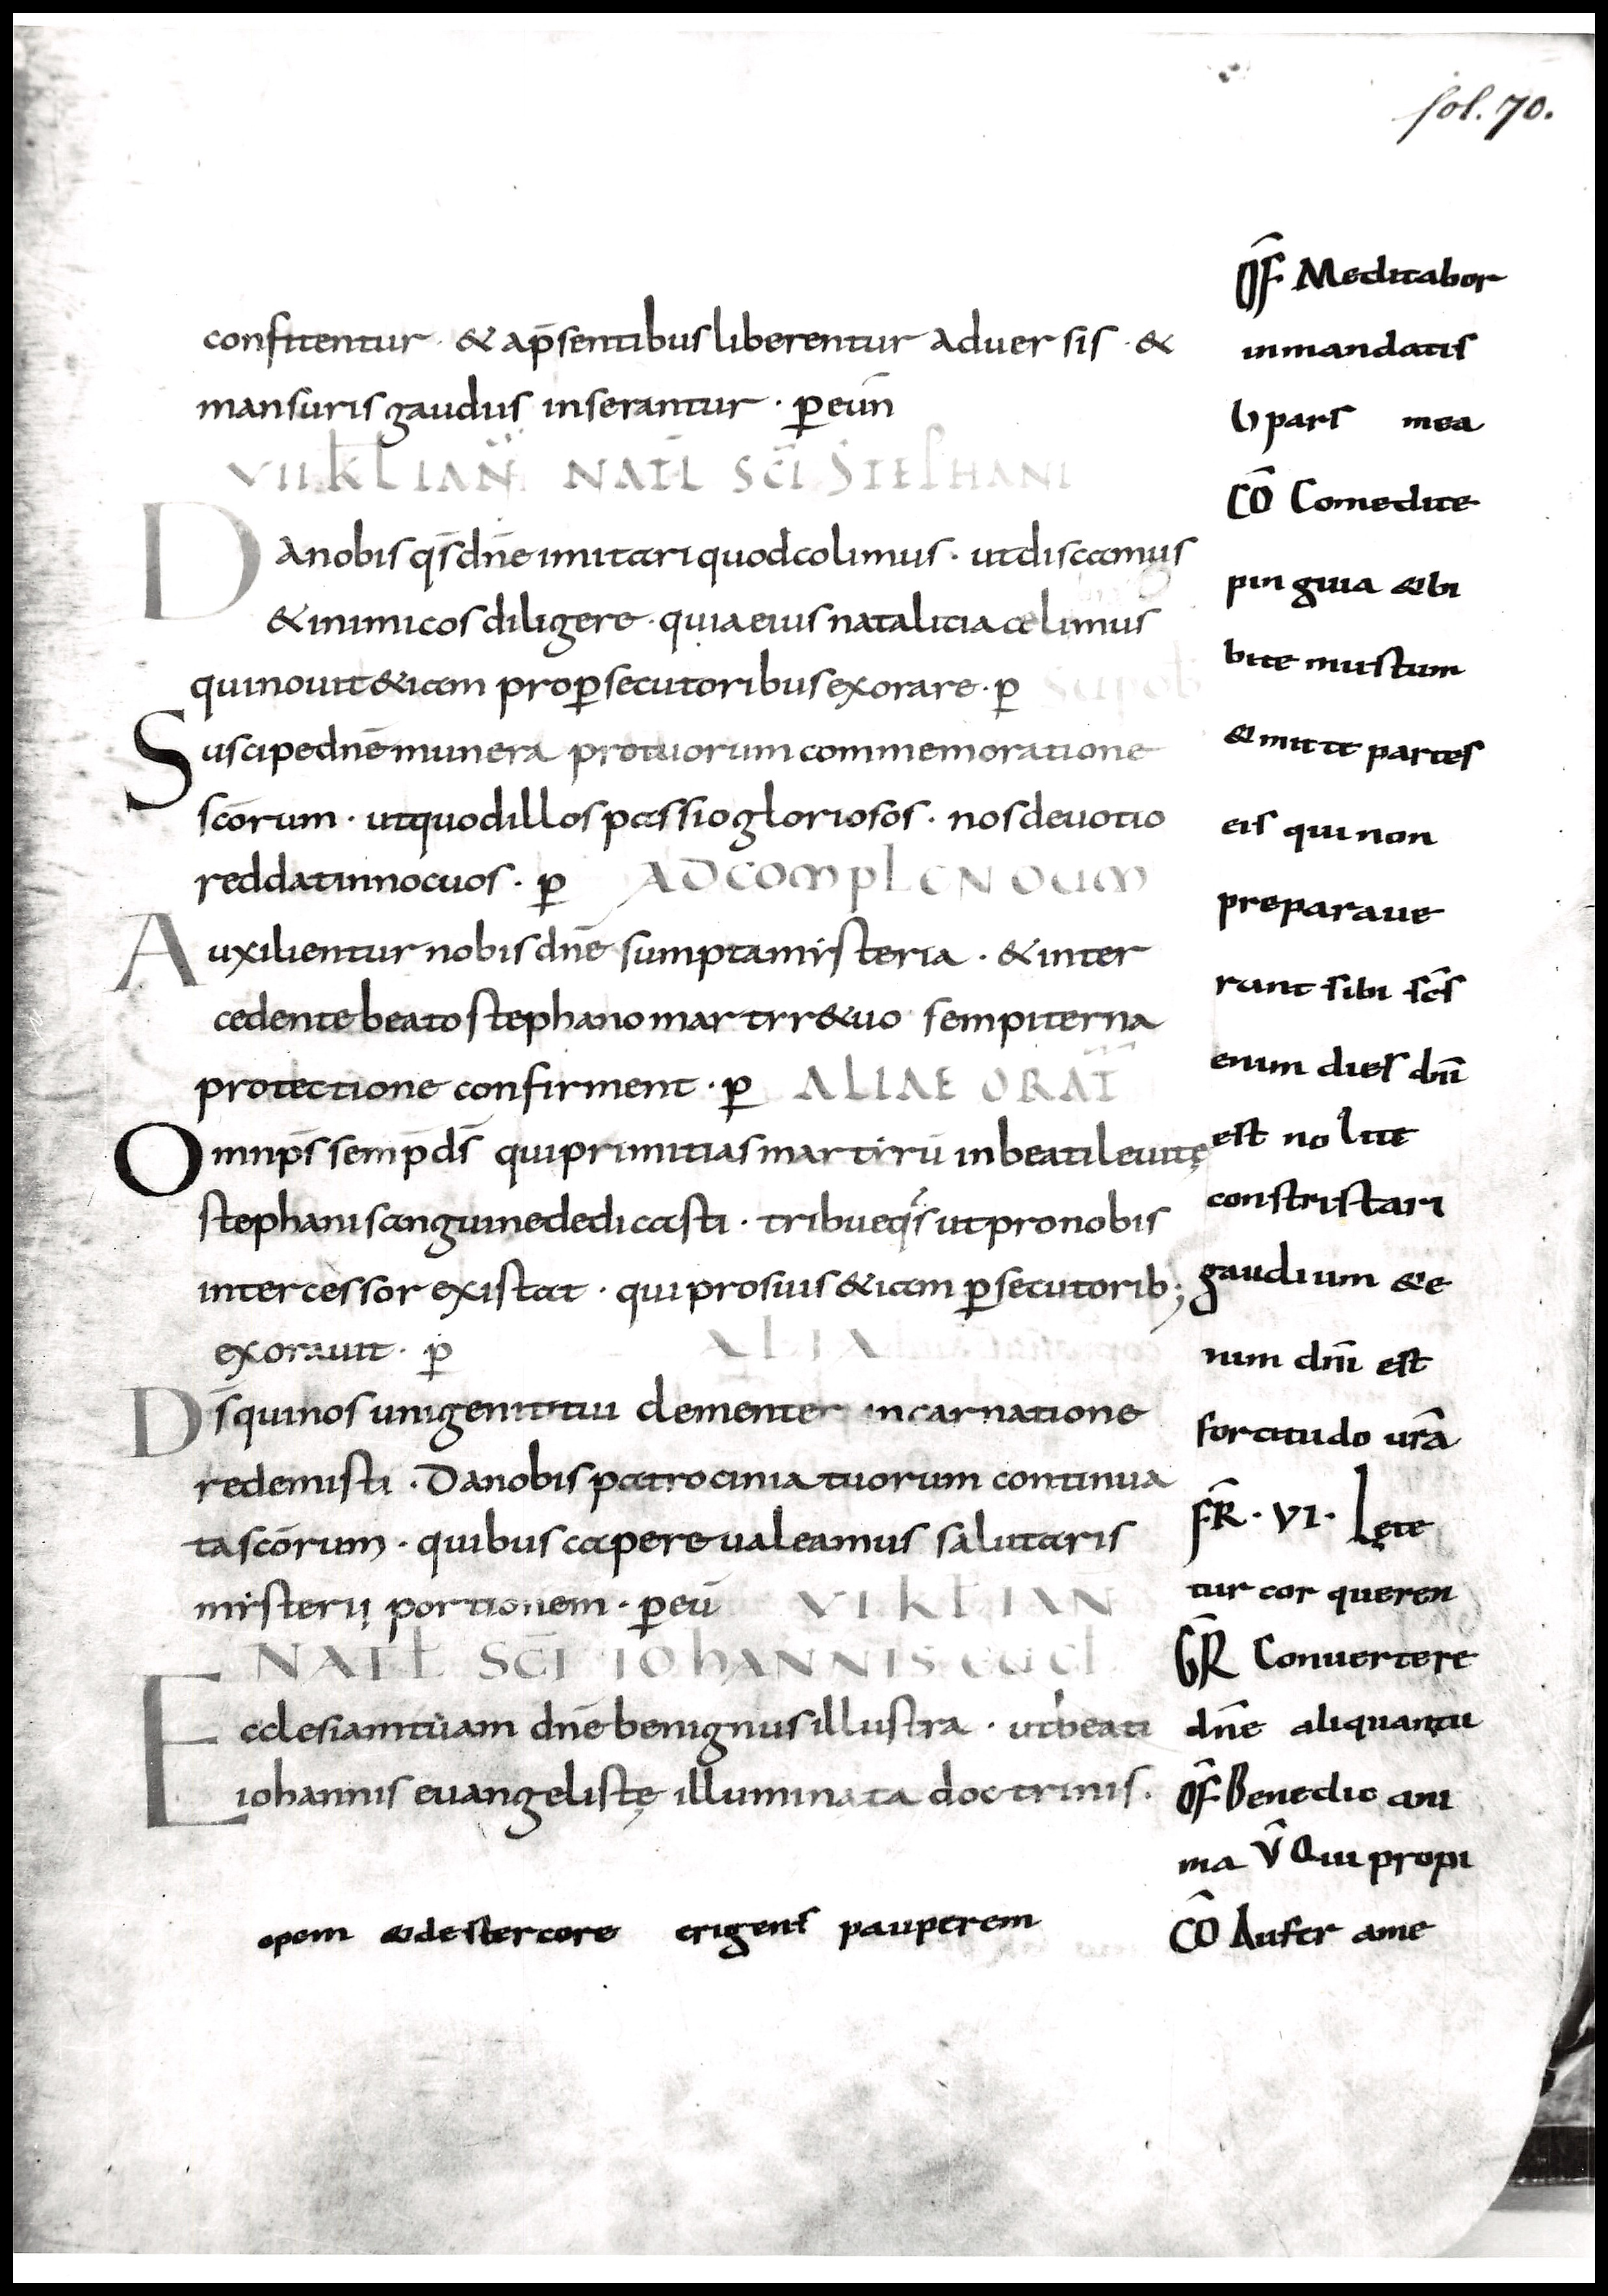 fol. 70.
confitentur · & ap̄sentibus liberentur aduersis · &
mansuris gaudiis inserantur · ꝑ eūn
VII KL IAN NATL SCI STEPHANI
Da nobis qs̄ dn̄e imitari quod colimus · ut discamus
& inimicos diligere · quia eius natalitia celimus
qui nouit &iam pro ꝑsecutoribus exorare · ꝑ
Suscipe dn̄e munera pro tuorum commemoratione
sc̄orum · ut quod illos passio gloriosos · nos deuotio
reddat innocuos · ꝑ AD COMPLENDUM
Auxilientur nobis dn̄e sumpta misteria · & inter
cedente beato stephano martyr&uo sempiterna
protectione confirment · ꝑ ALIAE ORAT
Omnip̄s semp̄ ds̄ qui primitias martirū in beati leuitę
stephani sanguine dedicasti · tribue qs̄ ut pro nobis
intercessor existat · qui pro suis &iam ꝑsecutorib;
exorauit · ꝑ ALIA
Ds̄ qui nos unigeniti tui clementer incarnatione
redemisti · Da nobis patrocinia tuorum continua
ta sc̄orum · quibus capere ualeamus salutaris
misterii portionem · ꝑ eū VI KL IAN
NATL SCI IOHANNIS
Ecclesiam tuam dn̄e benignus illustra · ut beati
iohannis euangelistę illuminata doctrinis ·
opem &de stercore erigens pauperem
OF̄ Meditabor
in mandatis
pars mea
CŌ Comedite
pinguia &bi
bite mustum
&mitte partes
eis qui non
preparaue
runt sibi sc̄s
enim dies dn̄i
est nolite
constristari
gaudium &e
nim dn̄i est
fortitudo ur̄a
FR̄ · VI · Lęte
tur cor queren
GR̄ Conuertere
dn̄e aliquantu
OF̄ Benedic ani
ma V̄ Qui propi
CŌ Aufer ame